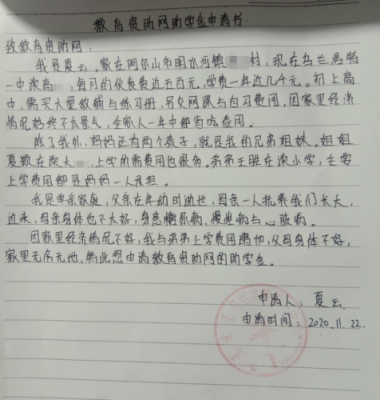 教育资助网助学金申请书
致教育资助网:
我是夏云,家在阿尔山市明水河镇 村,现在乌兰浩特
一中读高 ,每月的伙食费近五百元,学费一年近几千元。初上高
中,需买大量教辅与练习册,另交网课与自习费用,因家里经济
情况始终不太景气,全家人一年中都有吃药用。
除了我外,妈妈还有两个孩子,就是我的兄弟姐妹。姐姐
夏 在读大 ,上学的需费用也很多。弟弟王 在读小学,主要
上学费用都是妈妈一人承担。
我是单亲家庭,父亲在年幼时逝世,母亲一人抚养我们长大,
近来,母亲身体也不太好,身患糖尿病,慢 病与心脏病。
因家里经济情况不好,我与弟弟上学费用增加,父母身体不好,
家里无房无地,特此想申请教育资助网的助学金。
申请人:夏云
申请时间:2020.11.22.